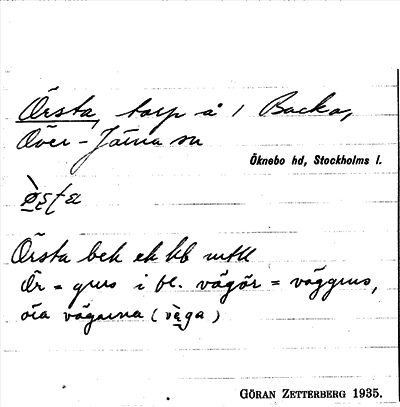 Örsta, torp å 1 Backa,
Över-Järna sn
Öknebo hd, Stockholms l.
Örsta bek ek kb uttl
Ör = grus i bl. vägör = väggrus,
öra vägarna (vèga)
GÖRAN ZETTERBERG 1935.